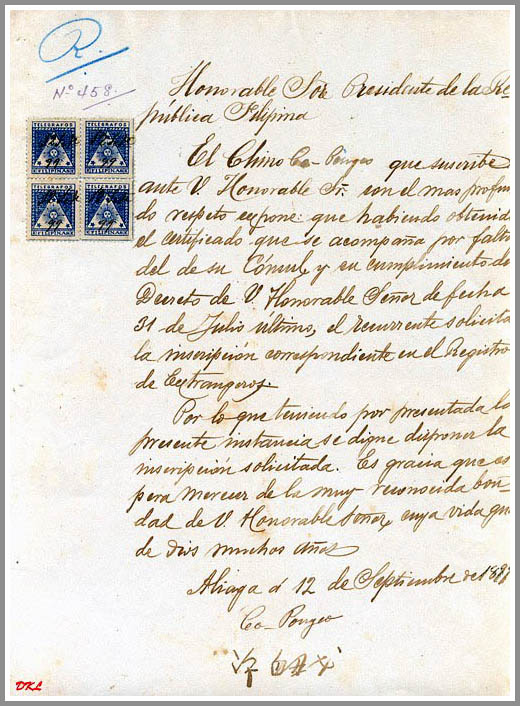 R.
Nº 458.
TELEGRAFOS TELEGRAFOS
E. FILIPINAS E. FILIPINAS
TELEGRAFOS TELEGRAFOS
E. FILIPINAS E. FILIPINAS
Honorable Sor Presidente de la Re-
pública Filipina
El Chino Co-Pongco que suscribe
ante V. Honorable Sr. con el mas profun
do respeto expone: que habiendo obtenido
el certificado que se acompaña por falta
del de su Cónsul y en cumplimiento de
Decreto de V. Honorable Señor de fecha
31 de Julio último, el recurrente solicita
la inscripción correspondiente en el Registro
de Extrangeros.
Por lo que teniendo por presentada la
presente instancia se digne disponer la
inscripción solicitada. Es gracia que es
pera merecer de la muy reconocida bon-
dad de V. Honorable Señor, cuya vida gu
de dios muchos años
Aliaga á 12 de Septiembre de
Co-Pongco
DKL